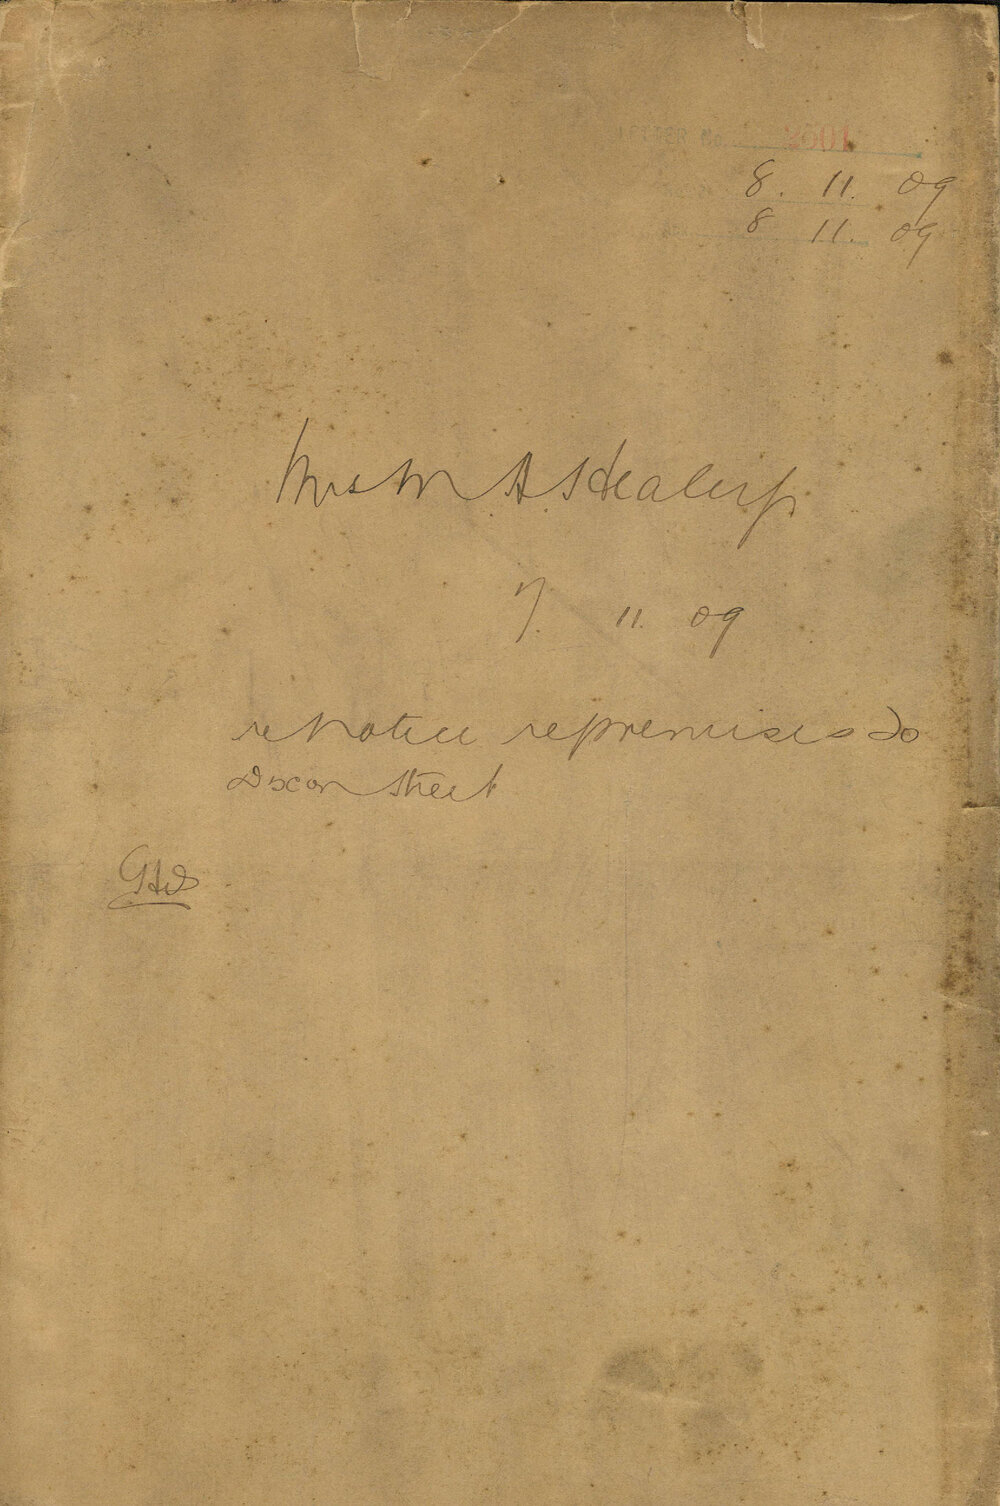 LETTER No. 2601
8. 11. 09
8 11. 09
Mrs M A Healey
7. 11 09
re Notice re premises
Dixon Street